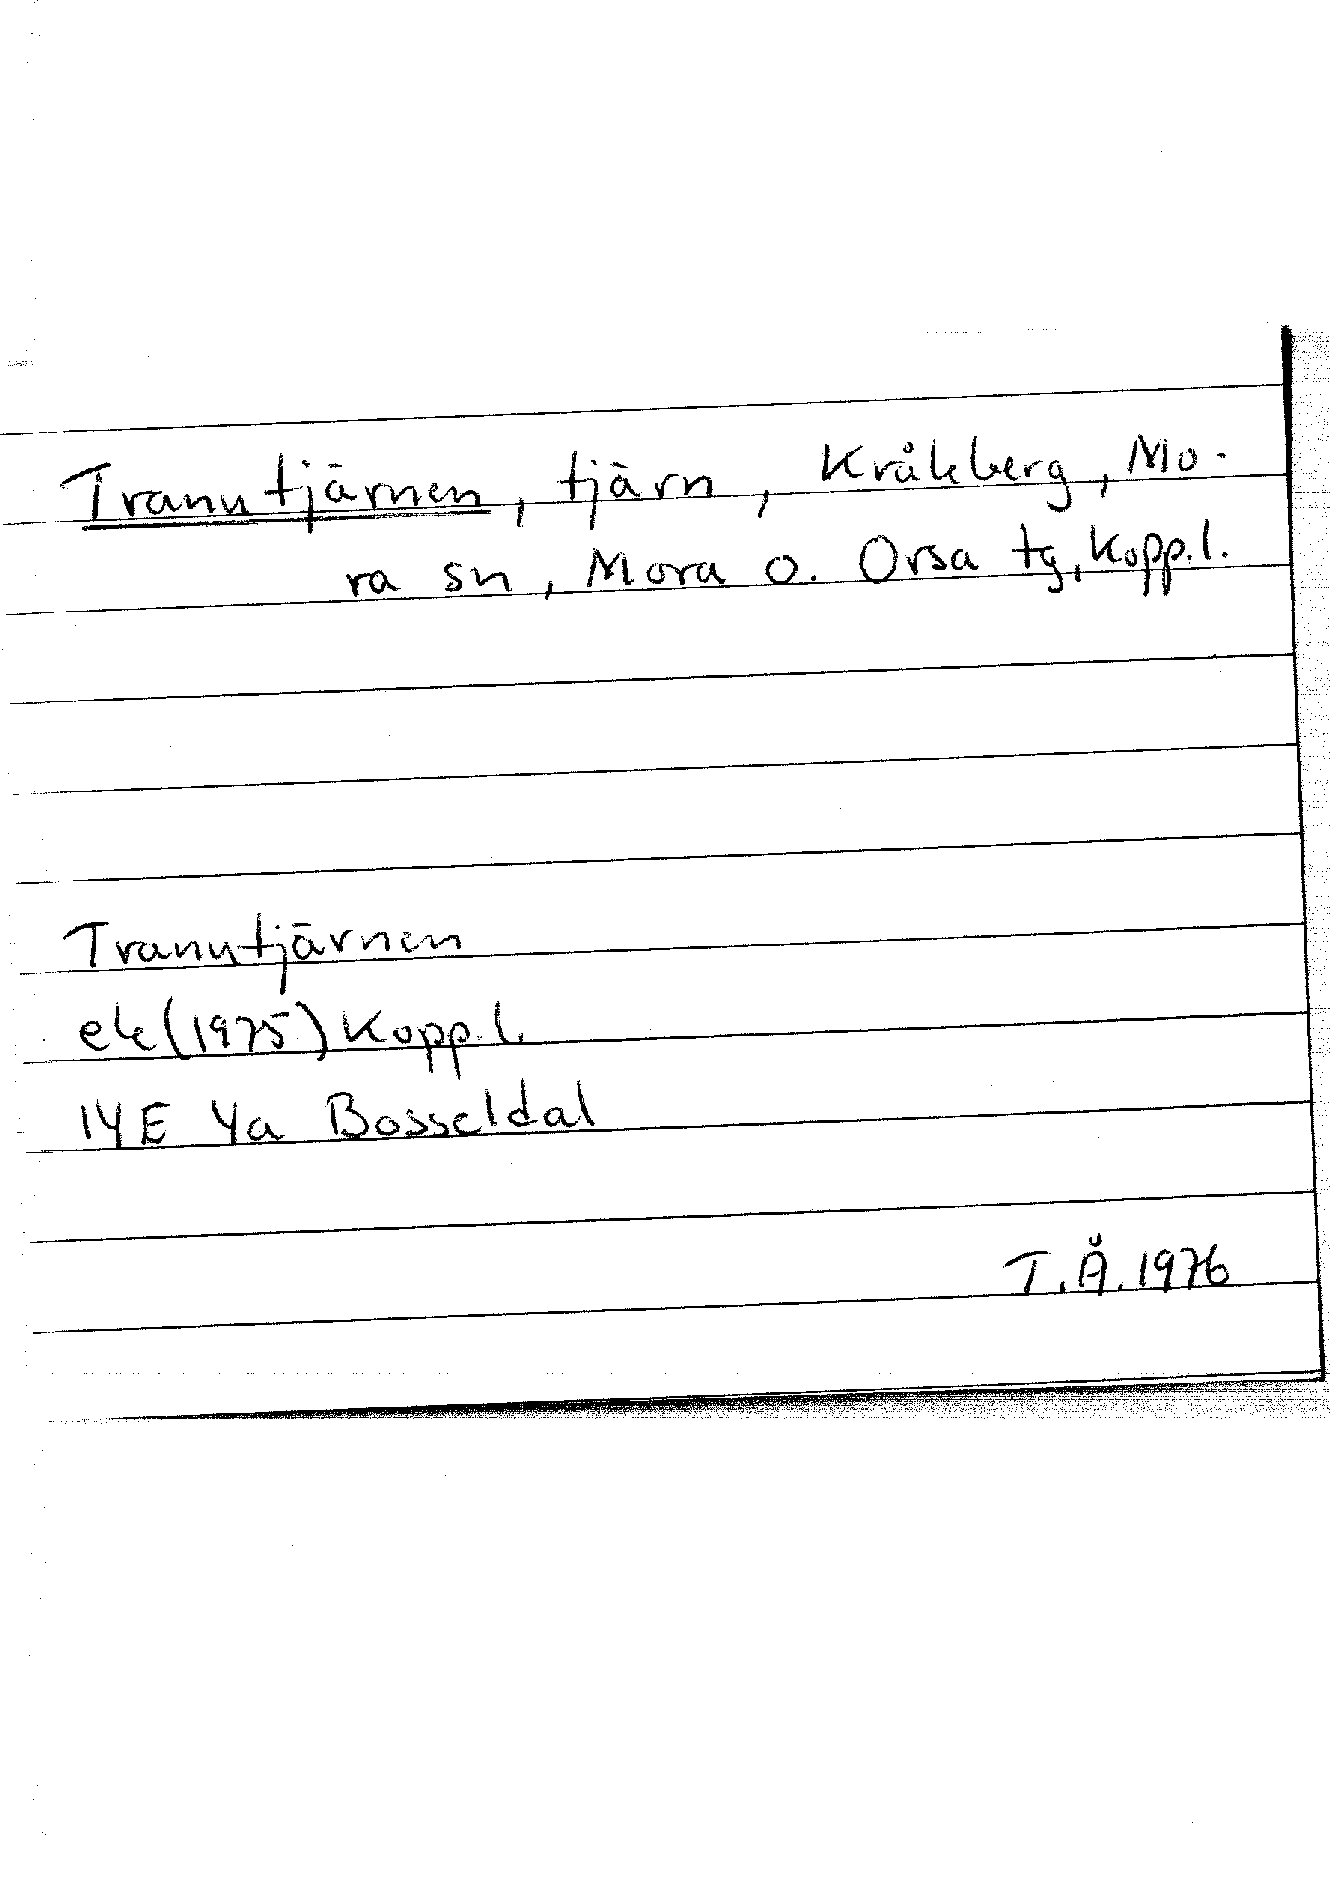 Tranutjärnen, tjärn, Kråkberg, Mo-
ra sn, Mora o. Orsa tg, Kopp.l.
Tranutjärnen
ek (1975) Kopp.l.
14E 4a Bosseldal
T.Å. 1976